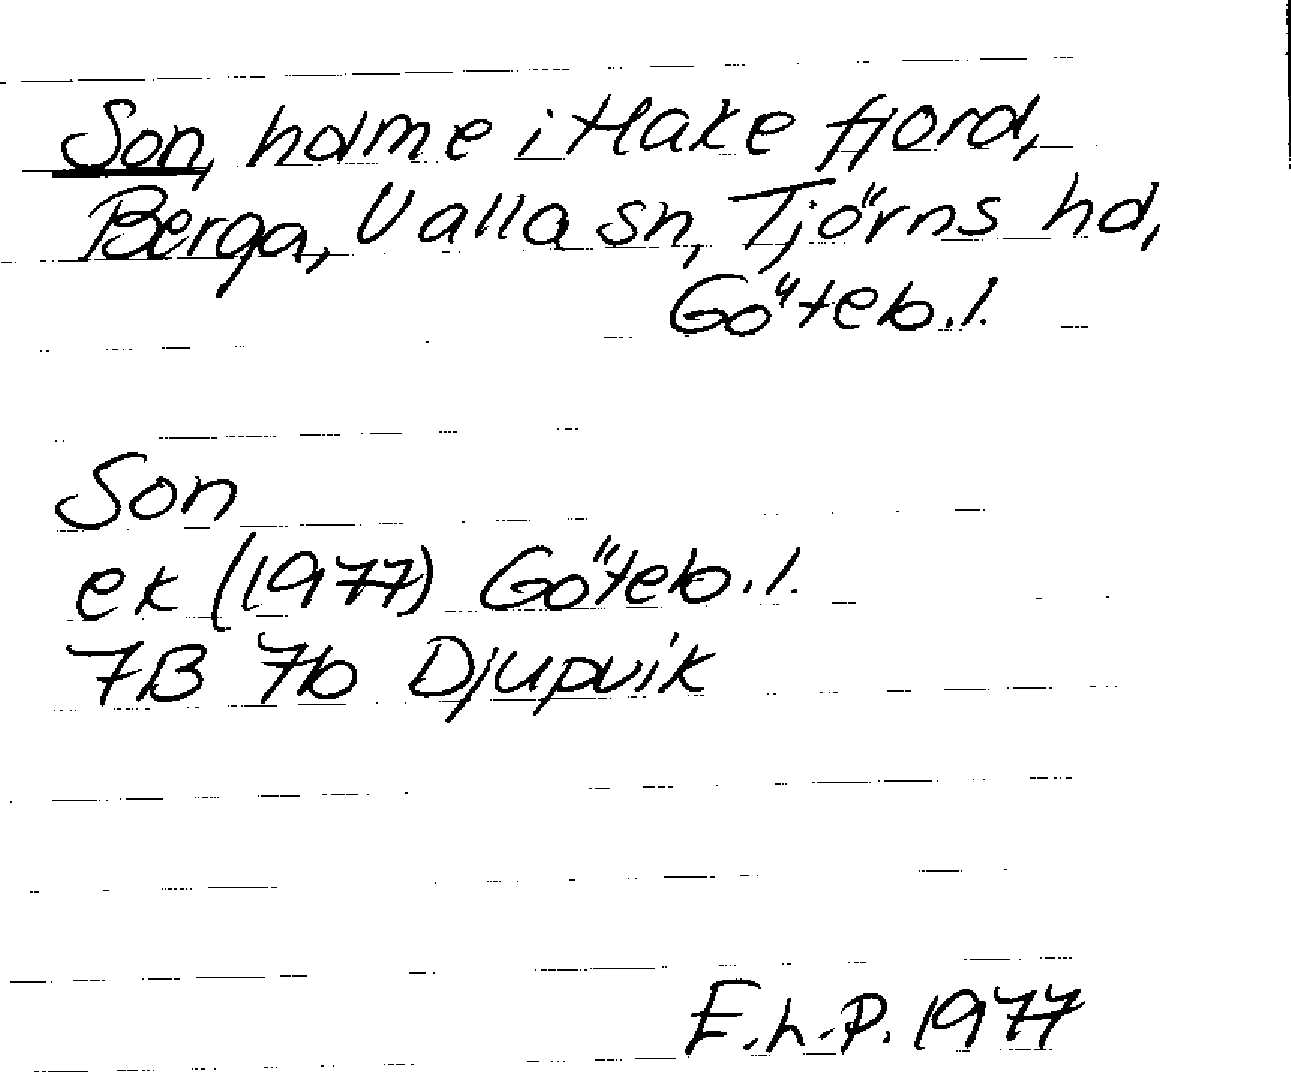 Son, holme i Hake fjord,
Berga, Valla sn, Tjörns hd,
Göteb.l.
Son
ek (1977) Göteb.l.
7B 7b Djupvik
E.h.P. 1977